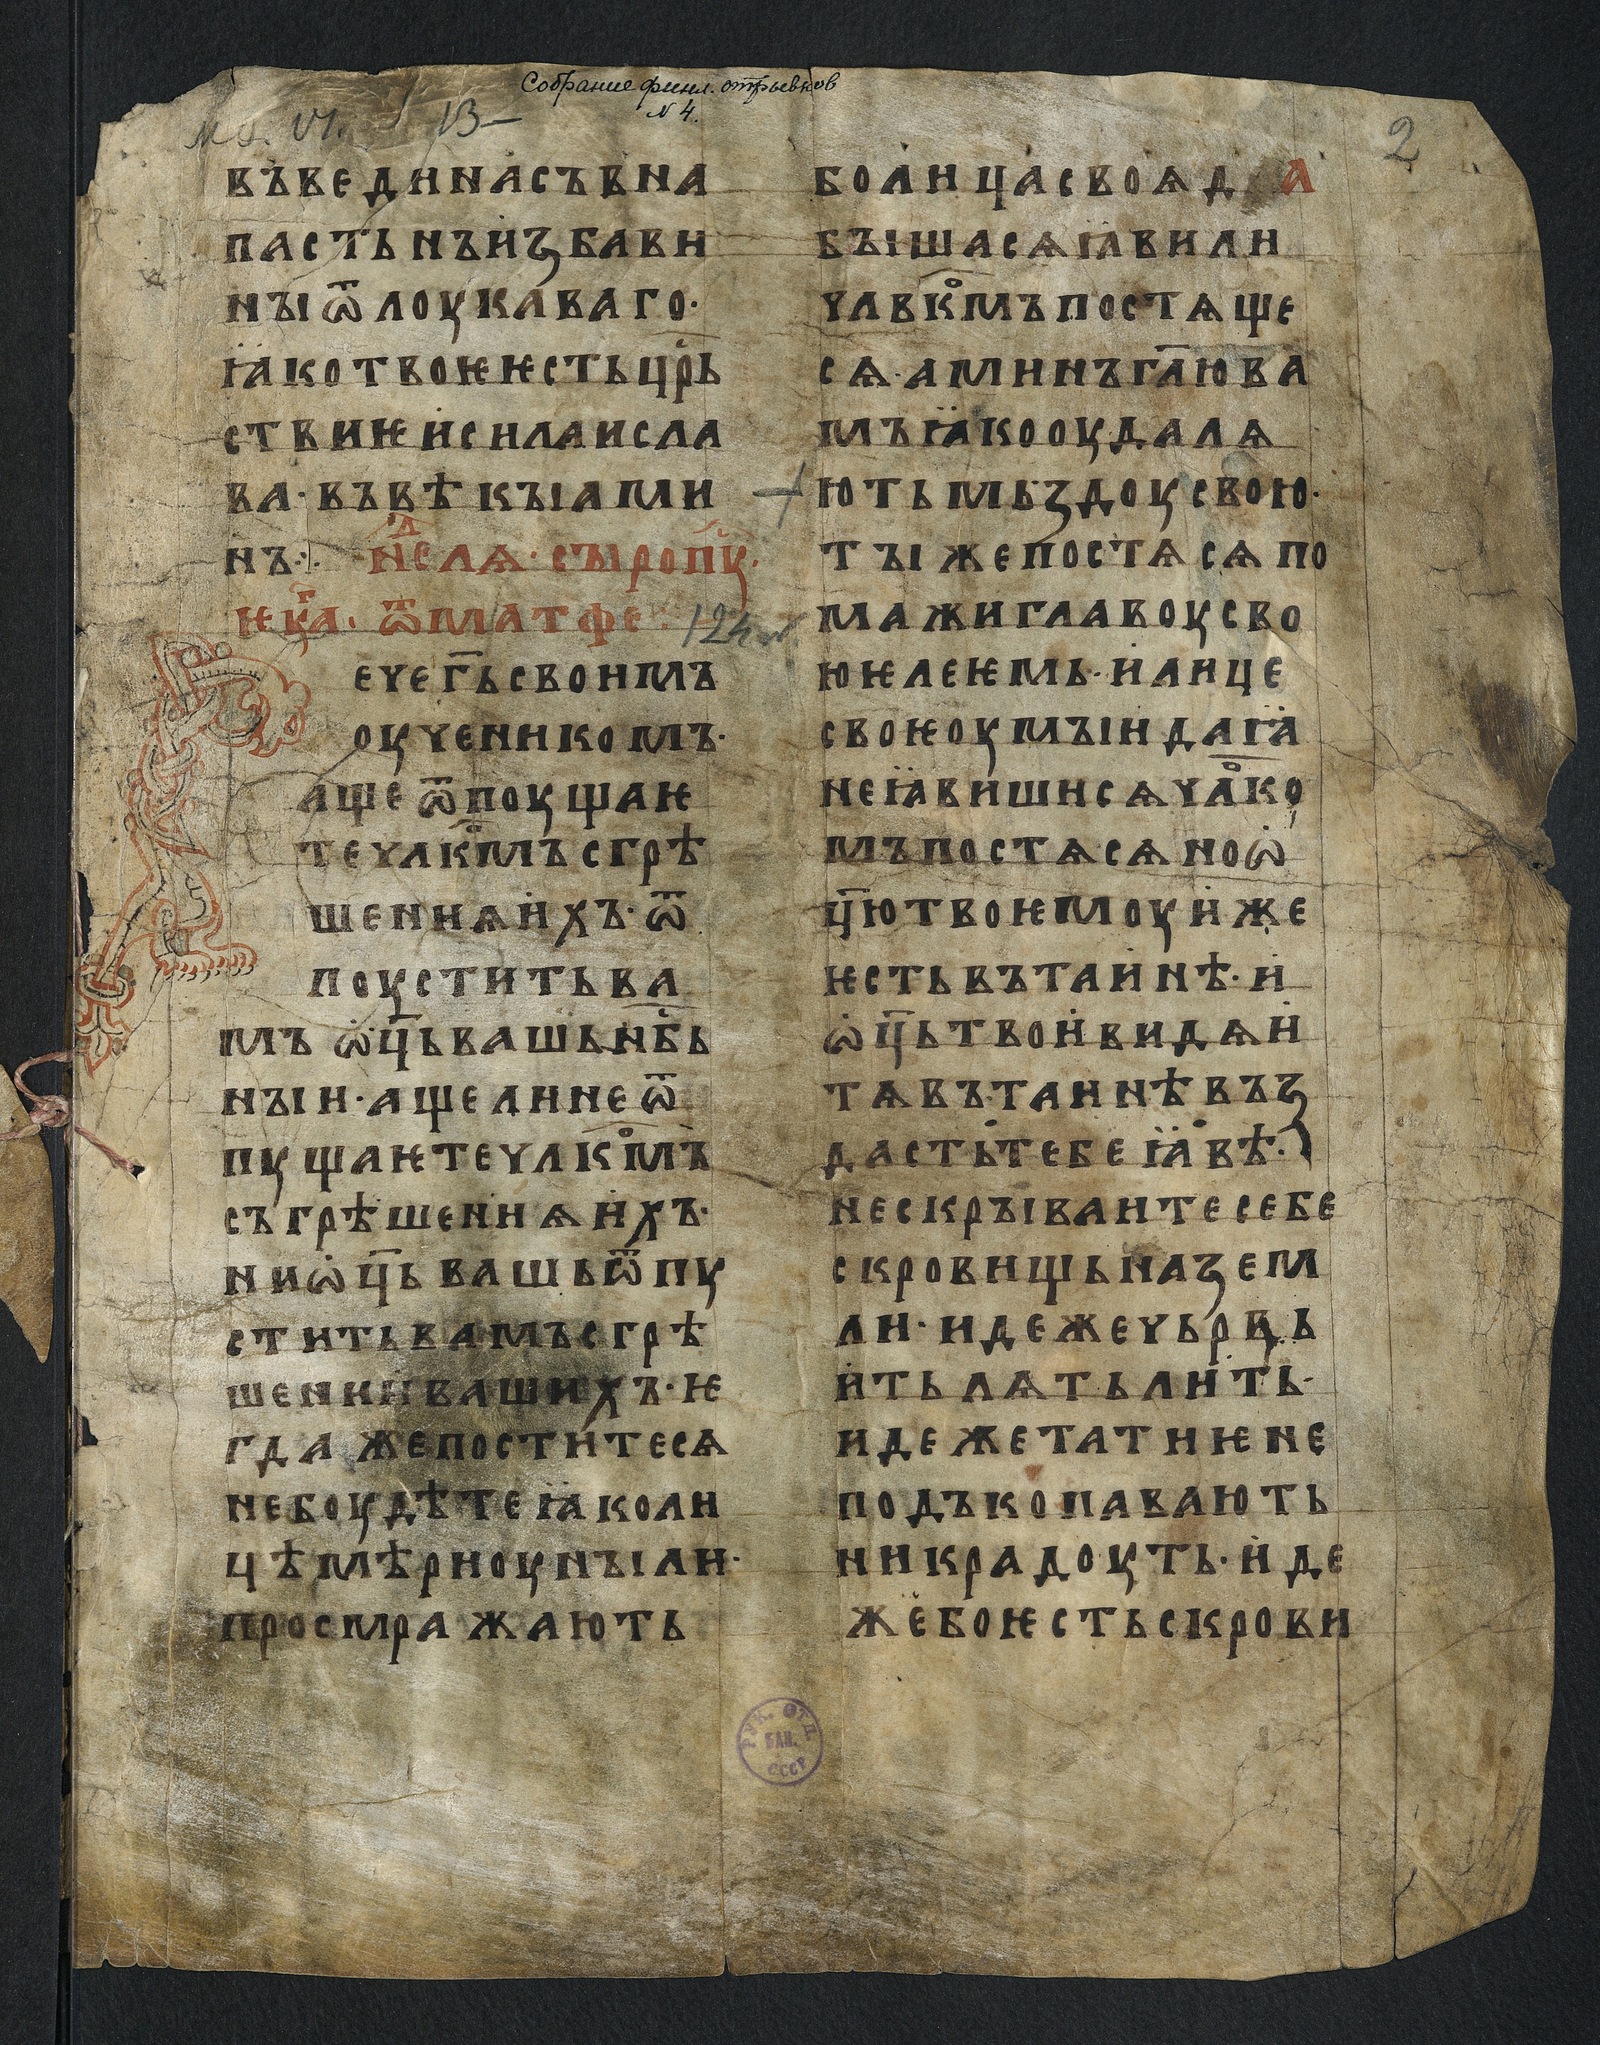 Собрание финл. отрывков
N 4.
Мѳ. VI. 13–
2
въведи насъ в на
пасть нъ избави
ны ѿ лоукаваго·
ꙗко твоѥ ѥсть црь
ствиѥ и сила и сла
ва· въ вѣкы ами
нъ:· нⷣелѧ· сыропⷭу·
ѥꙋⷢа· ѿ матфе:
ече гь своимъ
оученикомъ·
аще ѿпоущаѥ
те члкⷪмъ сгрѣ
шениѧ ихъ· ѿ
поустить ва
мъ ѡць вашь нбⷭь
ныи· аще ли не ѿ
пꙋщаѥте члкⷪмъ
съгрѣшениѧ ихъ·
ни ѡць вашь ѿпꙋ
стить вамъ сгрѣ
шении вашихъ· ѥ
гда же постите сѧ
не боудѣте ꙗко ли
цѣмѣри оуныли·
просмражають
бо лица своꙗ да
быша сѧ ꙗвили
члвкⷪмъ постѧще
сѧ· аминъ глю ва
мъ ꙗко оудалѧ
ють мьздоу свою·
ты же постѧ сѧ по
мажи главоу сво
ю ѥлеѥмь· и лице
своѥ оумыи да ꙗ
не ꙗвиши сѧ члⷪко
мъ постѧ сѧ но ѡ
цю твоѥмоу иже
ѥсть въ таинѣ· и
ѡць твои видѧи
тѧ въ таинѣ въз
дасть тебе ꙗвѣ·
не скрываите себе
скровищь на зем
ли· идеже чьрвь
и тьлѧ тьлить·
идеже татиѥ не
подъкопавають
ни крадоуть· иде
же бо ѥсть скрови
РУК. ОТД.
БАН.
СССР